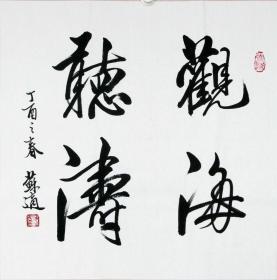 觀海
聽濤
丁酉之春 蘇適